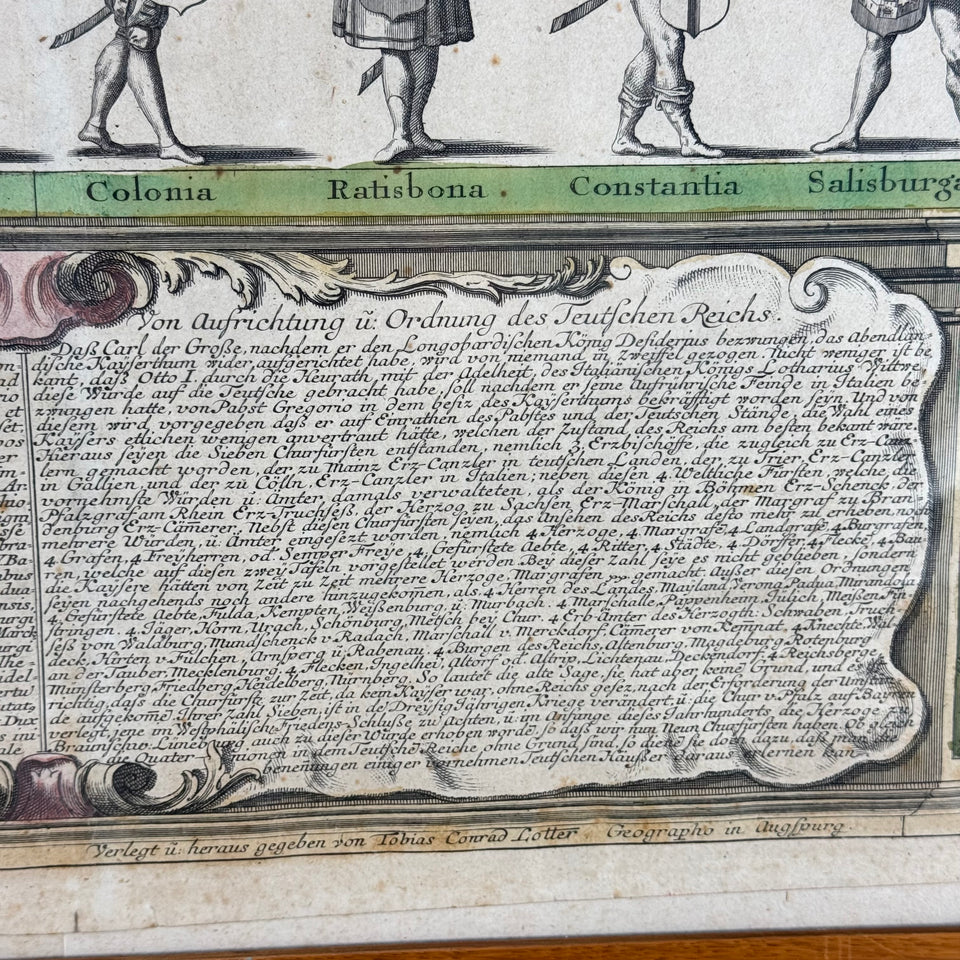 Colonia Ratisbona Constantia Salisburga
Von Aufrichtung ū: Ordnung des Teutschen Reichs.
Daß Carl der Große, nachdem er den Longobardischen König Desiderius bezwungen, das Abendlän
dische Kayserthum wider aufgerichtet habe, wird von niemand in Zweiffel gezogen. Nicht weniger ist be
kant, daß Otto I. durch die Heurath mit der Adelheit, des Italiänischen Königs Lotharius Wittwe
diese Würde auf die Teutsche gebracht habe, soll nachdem er seine Aufrührische Feinde in Italien be
zwungen hatte, von Pabst Gregorio in dem besiz des Kayserthums bekräfftigt worden seyn. Und von
diesem wird vorgegeben daß er auf Einrathen des Pabstes und der Teutschen Stände, die Wahl eines
Kaysers etlichen wenigen anvertraut hätte, welchen der Zustand des Reichs am besten bekant wäre.
Hieraus seyen die Sieben Churfürsten entstanden, nemlich 3, Erzbischöffe, die zugleich zu Erz-Canz
lern gemacht worden, der zu Mainz Erz-Canzler in teutschen Landen, der zu Trier, Erz-Canzler
in Gallien, und der zu Cölln, Erz-Canzler in Italien; neben diesen 4. Weltliche Fürsten, welche die
vornehmste Würden ū. Ämter damals verwalteten, als der König in Böhmen Erz-Schenck, der
Pfalzgraf am Rhein Erz-Truchseß, der Herzog zu Sachsen Erz-Marschall, der Margraf zu Bran-
denburg Erz-Cämerer, Nebst diesen Churfürsten seyen, das Ansehen des Reichs desto mehr zu erheben, noch
mehrere Würden, ū. Ämter eingesezt worden, nemlich 4 Herzoge, 4. Margrafē, 4. Landgrafē, 4. Burgrafen
4. Grafen, 4. Freyherren, od. Semper Freye, 4, Gefürstete Aebte, 4. Ritter, 4. Städte, 4. Dörffer, 4. Flecke, 4. Bau
ren, welche auf diesen zwey Tafeln vorgestellet werden. Bey dieser Zahl seye es nicht geblieben sondern
die Kaysere hätten von Zeit zu Zeit mehrere Herzoge, Margrafen gemacht. Außer diesen Ordnungen
seyen nachgehends noch andere hinzugekom̄en, als 4 Herren des Landes, Mayland, Verona, Padua, Mirandola
4, Gefürstete, Aebte, Fulda, Kempten, Weißenburg, ū. Murbach. 4. Marschalle, Pappenheim, Jülich, Meißen, Fin
stringen. 4. Jäger, Horn, Urach, Schönburg, Metsch bey Chur. 4 Erb-Ämter des Herzogth: Schwaben, Truch
seß von Waldburg, Mundschenck v Radach, Marschall v. Merckdorf, Cämerer von Kem̄nat, 4 Knechte, Wal-
deck, Hirten v Fülchen, Arnsperg ū Rabenau. 4. Burgen des Reichs, Altenburg, Magdeburg, Rotenburg
an der Tauber, Mecklenburg, 4, Flecken, Ingelhei, Altorf od. Alstrip, Lichtenau, Deckendorf. 4 Reichsberge
Münsterberg, Friedberg, Heidelberg, Nürnberg. So lautet die alte Sage, sie hat aber keinē Grund, und es
richtig, daß die Churfürstē, zur Zeit, da kein Kayser war, ohne Reichs gesez, nach der Erforderung der
de aufgekom̄e, ihrer Zahl, Sieben, ist in de Dreyßig Jährigen Kriege verändert, ū. die Chur v. Pfalz auf Bayern
verlegt, jene im Westphälischē Friedens-Schluße zu Achten, ū. im Anfange dieses Jahrhunderts die Herzoge zu
Braunschw. Lüneb auch zu dieser Würde erhoben wordē, so daß wir nun Neun Churfürsten haben. Ob gleich
die Quater in dem Teutschē Reiche, ohne Grund sind, so diene sie doch dazu, daß man
benen̄ungen einiger vornehmen Teutschen Häußer daraus erlernen kan
Verlegt ū: heraus gegeben von Tobias Conrad Lotter. Geographo in Augspurg.